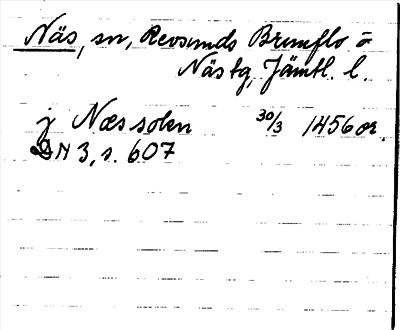 Näs, sn, Revsunds Brunflo o
Näs tg, Jämtl. l.
j Næs soken 30/3 1456 or.
DN 3, s. 607